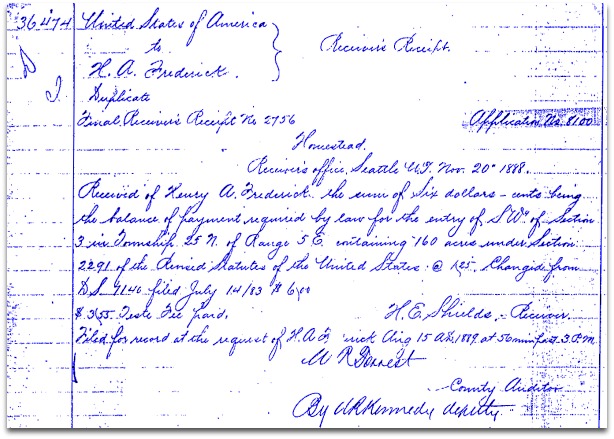 36474 United States of America
to
H. A. Frederick.
Receiver's Receipt.
Duplicate
Final Receiver's Receipt No 2756
Application No. 8100
Homestead.
Receiver's office, Seattle W.T. Nov. 20th 1888.
Received of Henry A. Frederick the sum of Six dollars - cents being
the balance of payment required by law for the entry of S.W. of Section
3 in Township 25 N. of Range 5 E. containing 160 acres under Section
2291 of the Revised Statutes of the United States @ 1.25. Changed from
D.S. 7140 filed July 14/83 $6.00
$3.55 Teste Fee paid.
H. E. Shields, - Receiver.
Filed for record at the request of H. A. F rick Aug 15 A.D. 1889, at 50 min past 3 P.M.
County Auditor
By W R Kennedy deputy.